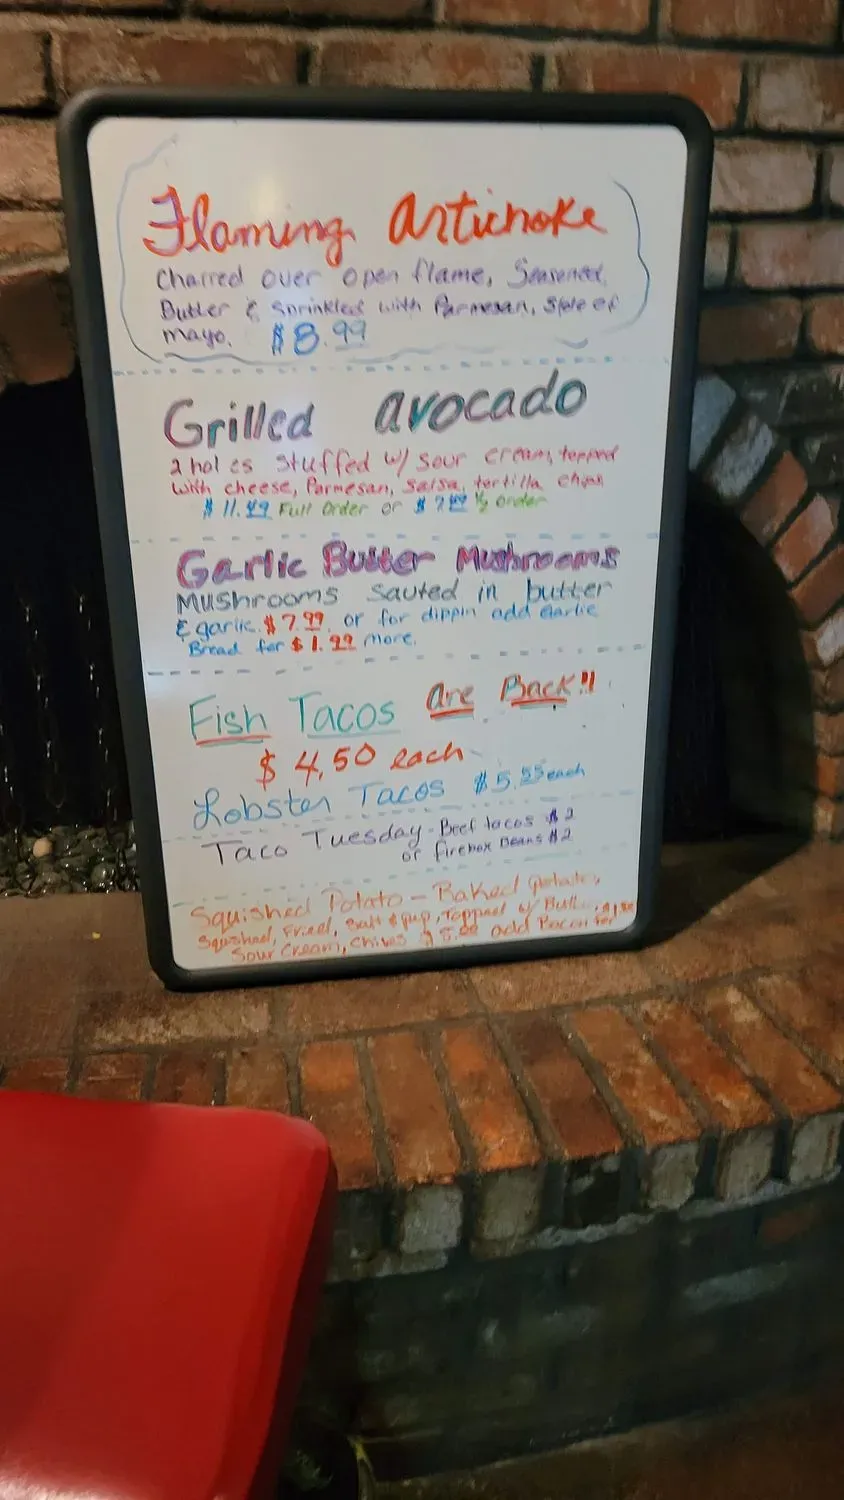 Flaming Artichoke
Charred over open flame, Seasoned,
Butter & Sprinkled with Parmesan, Side of
mayo. $8.99
Grilled avocado
2 hol es Stuffed w/ Sour cream, topped
with cheese, Parmesan, Salsa, tortilla chips
$11.49 Full Order or $7.49 ½ order
Garlic Butter Mushrooms
Mushrooms sauted in butter
& garlic. $7.99 or for dippin add Garlic
Bread for $1.99 more.
Fish Tacos are Back!!
$4.50 each
Lobster Tacos $5.55 each
Taco Tuesday - Beef tacos $2
or firebox Beans $2
Squished Potato - Baked potato,
Squished, Fried, Salt & pup, Topped w/
Sour Cream, Chives add Bacon for